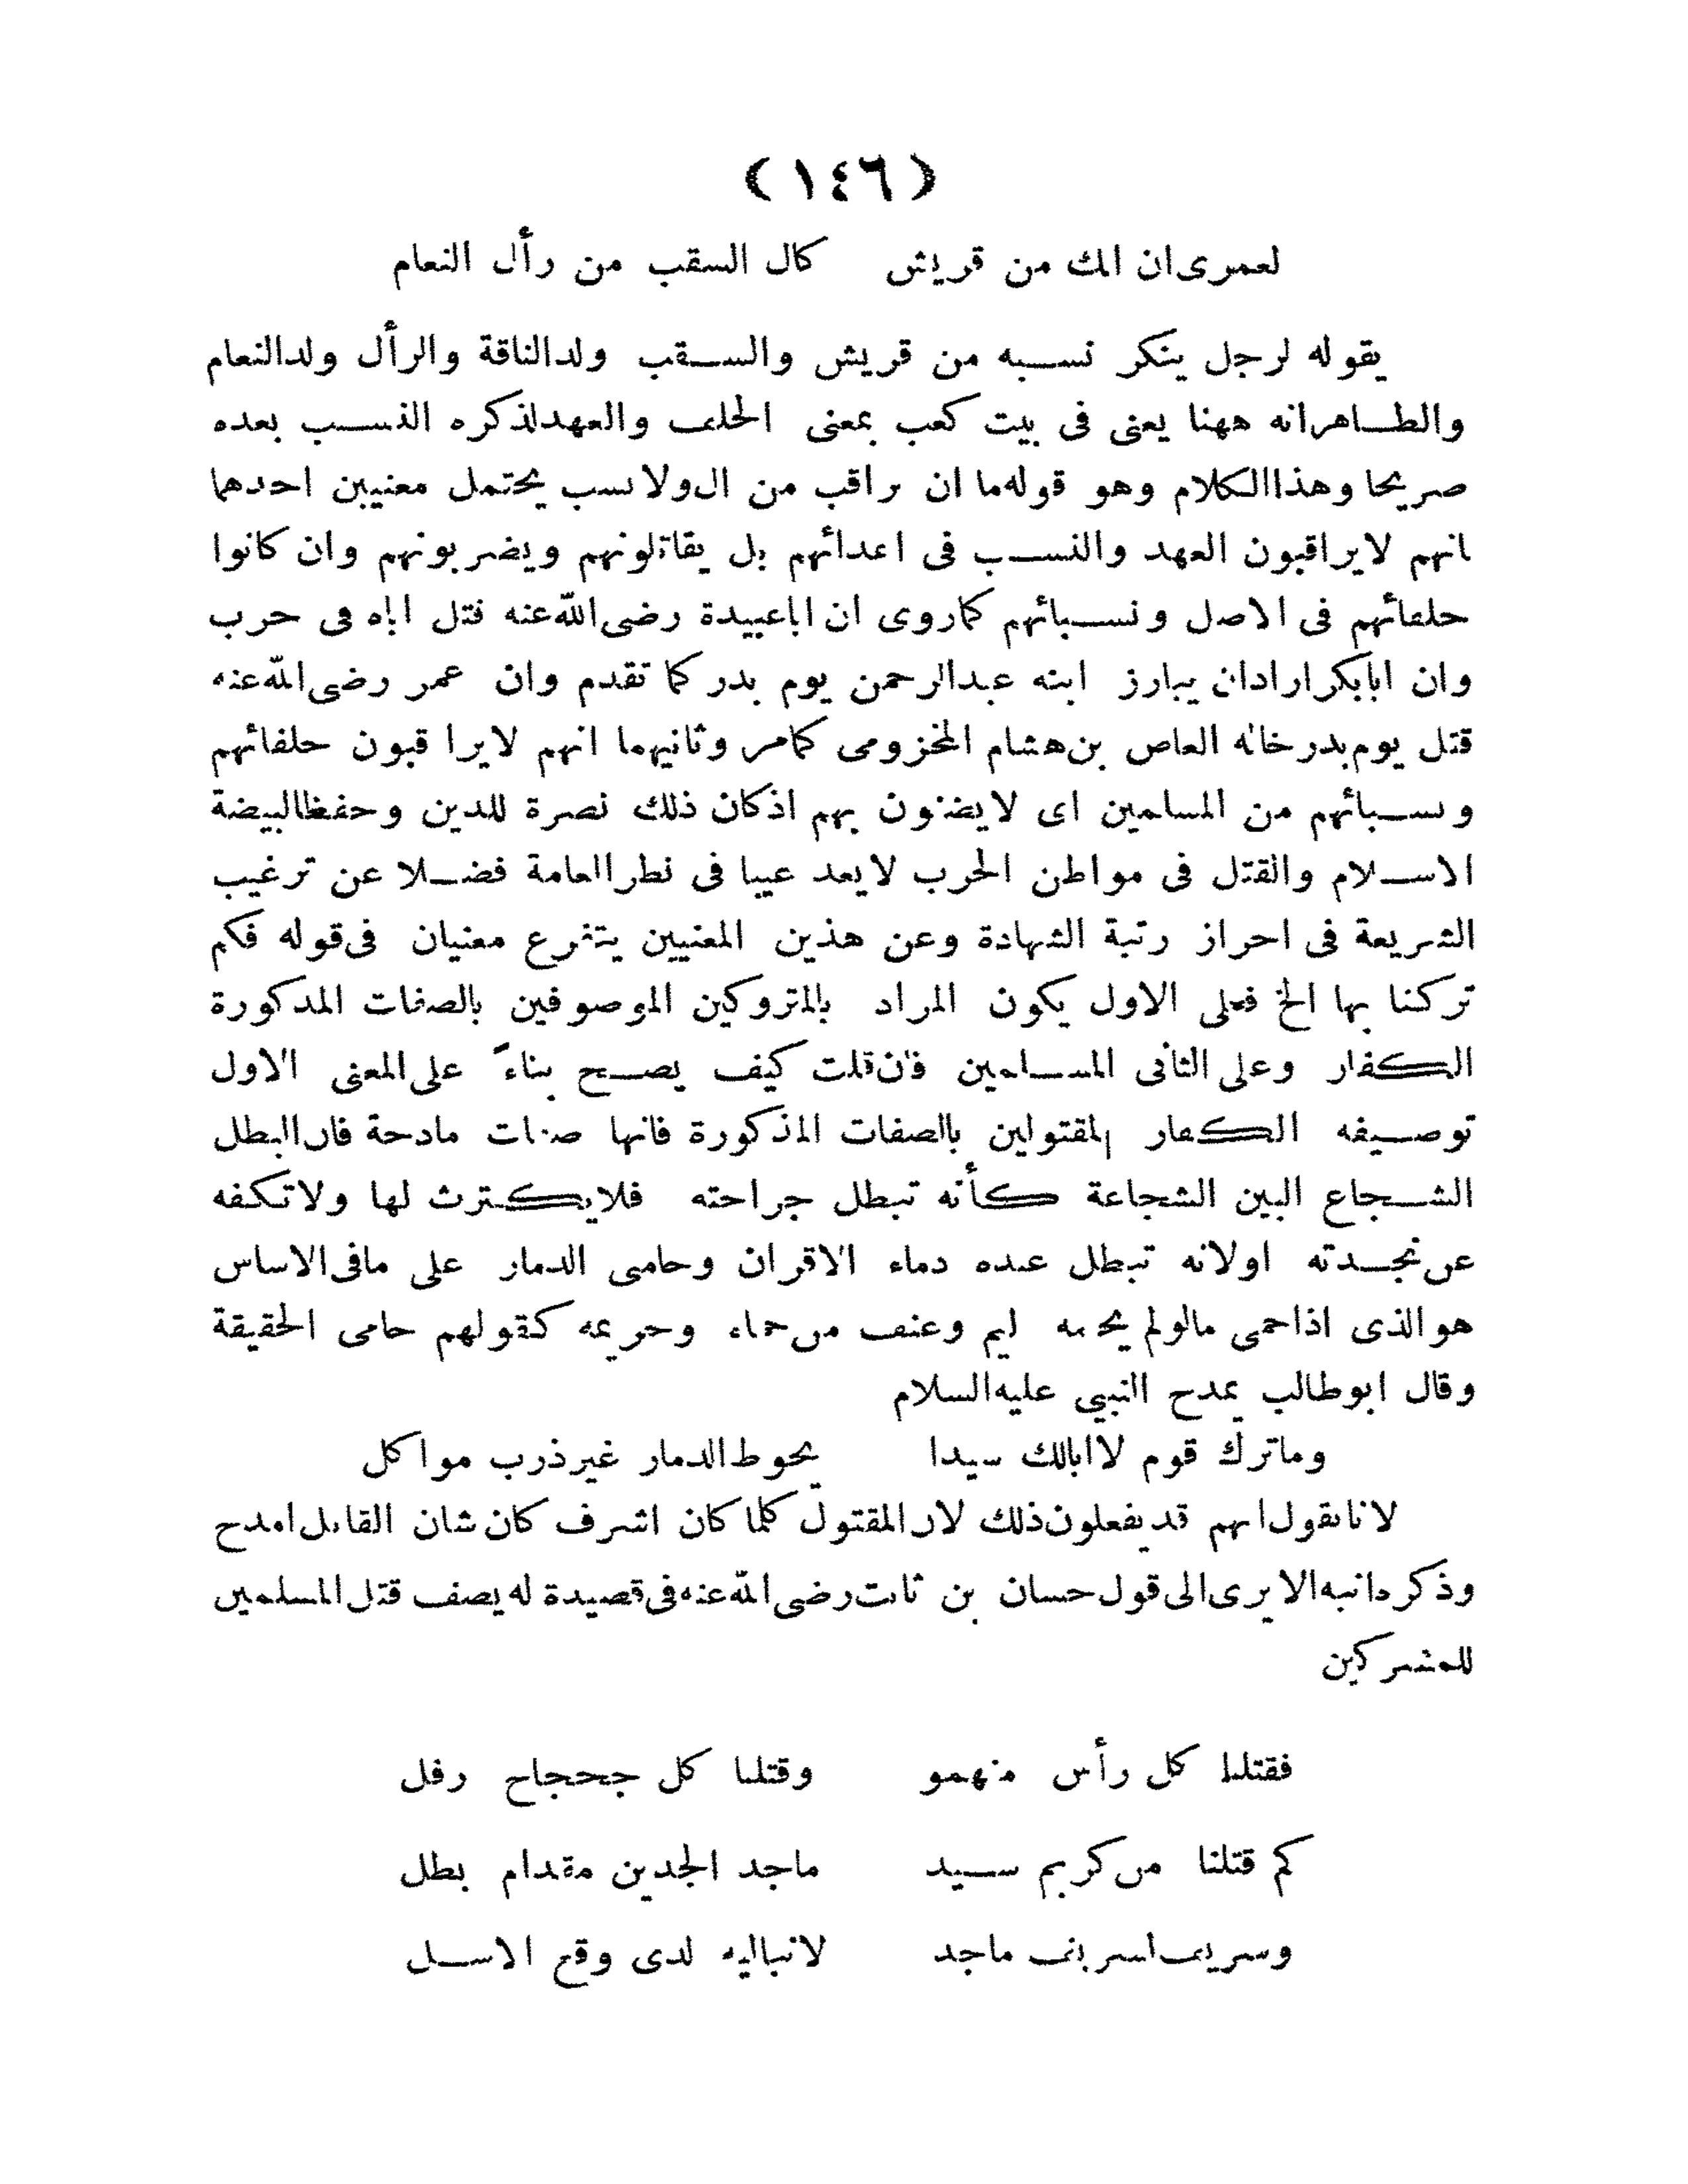 ( ١٤٦ )
لعمرى ان الك من قريش كال السقب من رأل النعام
يقوله لرجل ينكر نسبه من قريش والسقب ولد الناقة والرأل ولد النعام
والظاهر انه ههنا يعنى فى بيت كعب بمعنى الحلف والعهد لذكره النسب بعده
صريحا وهذا الكلام وهو قوله ما ان نراقب من ال ولا نسب يحتمل معنيين احدهما
انهم لا يراقبون العهد والنسب فى اعدائهم بل يقاتلونهم ويضربونهم وان كانوا
حلفائهم فى الاصل ونسبائهم كما روى ان اباعبيدة رضى الله عنه قتل اباه فى حرب
وان ابابكر اراد ان يبارز ابنه عبدالرحمن يوم بدر كما تقدم وان عمر رضى الله عنه
قتل يوم بدر خاله العاص بن هشام المخزومى كمامر وثانيهما انهم لايراقبون حلفائهم
ونسبائهم من المسلمين اى لايضنون بهم اذ كان ذلك نصرة للدين وحفظا لبيضة
الاسلام والقتل فى مواطن الحرب لايعد عيبا فى نظر العامة فضلا عن ترغيب
الشريعة فى احراز رتبة الشهادة وعن هذين المعنيين يتفرع معنيان فى قوله فكم
تركنا بها الخ فعلى الاول يكون المراد بالمتروكين الموصوفين بالصفات المذكورة
الكفار وعلى الثانى المسلمين فان قلت كيف يصح بناءً على المعنى الاول
توصيفه الكفار المقتولين بالصفات المذكورة فانها صفات مادحة فان البطل
الشجاع البين الشجاعة كأنه تبطل جراحته فلايكترث لها ولاتكفه
عن نجدته اولانه تبطل عنده دماء الاقران وحامى الذمار على مافى الاساس
هو الذى اذا حمى مالولم يحمه ليم وعنف من حماه وحريمه كقولهم حامى الحقيقة
وقال ابوطالب يمدح النبى عليه السلام
وماترك قوم لاابالك سيدا يحوط الذمار غير ذرب مواكل
لانا نقول انهم قد يفعلون ذلك لان المقتول كلما كان اشرف كان شان القاتل امدح
وذكره انبه الا يرى الى قول حسان بن ثابت رضى الله عنه فى قصيدة له يصف قتل المسلمين
للمشركين
فقتلنا كل رأس منهمو وقتلنا كل جحجاح رفل
كم قتلنا من كريم سيد ماجد الجدين مقدام بطل
وشريف لشريف ماجد لانباليه لدى وقع الاسل